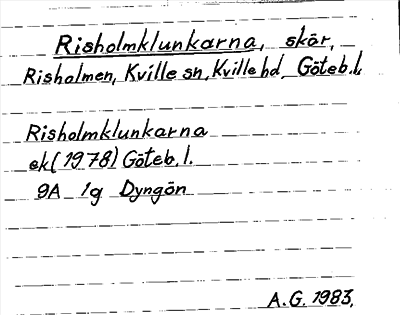 Risholmklunkarna, skär,
Risholmen, Kville sn, Kville hd, Göteb. l.
Risholmklunkarna
ek (1978) Göteb. l.
9A 1g Dyngön
A.G. 1983.